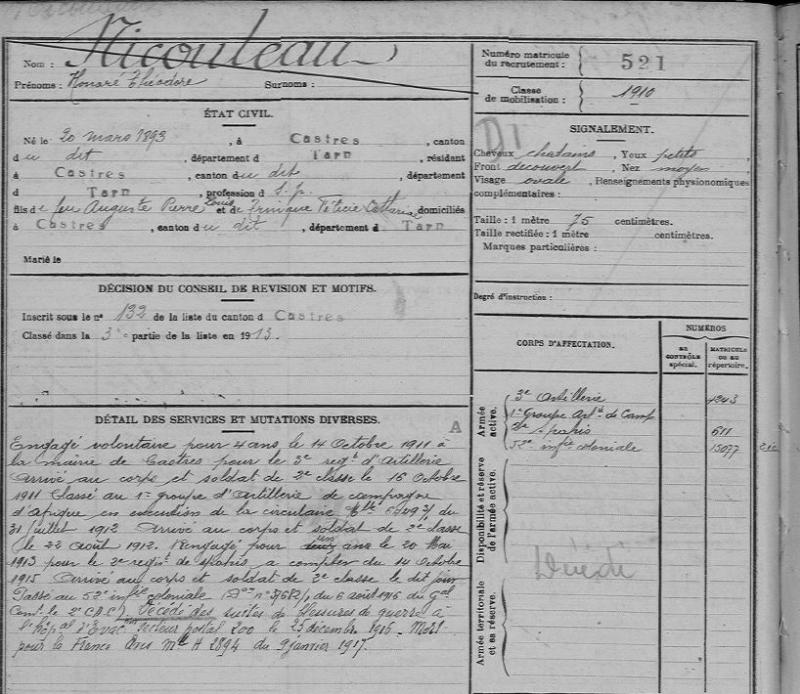 Nom : Nicouleau
Prénoms : Honoré Théodore Surnoms :
Numéro matricule du recrutement : 521
Classe de mobilisation : 1910
ÉTAT CIVIL.
Né le 20 mars 1893, à Castres, canton
du dit, département d Tarn, résidant
à Castres, canton du dit, département
d Tarn, profession d S. p.
fils de feu Auguste Pierre Louis et de domiciliés
à Castres, canton du dit, département d Tarn
Marié le
SIGNALEMENT.
Cheveux chatains, Yeux petits
Front découvert, Nez moyen
Visage ovale, Renseignements physionomiques
complémentaires :
Taille : 1 mètre 75 centimètres.
Taille rectifiée : 1 mètre centimètres.
Marques particulières :
Degré d'instruction :
DÉCISION DU CONSEIL DE REVISION ET MOTIFS.
Inscrit sous le n° 132 de la liste du canton d Castres
Classé dans la 3e partie de la liste en 1913.
CORPS D'AFFECTATION.
NUMÉROS
AU CONTRÔLE spécial.
MATRICULE OU AU répertoire.
Armée active.
3e Artillerie 4243
1er Groupe Art ie de Camp
2e Spahis 611
52e inf ie coloniale 15077
Disponibilité et réserve de l'armée active.
Décédé
Armée territoriale et sa réserve.
DÉTAIL DES SERVICES ET MUTATIONS DIVERSES.
A
Engagé volontaire pour 4 ans le 14 Octobre 1911 à
la mairie de Castres pour le 3e regt d'Artillerie
Arrivé au corps et soldat de 2e classe le 16 Octobre
1911 Classé au 1er groupe d'Artillerie de campagne
d'Afrique en exécution de la circulaire du
31 juillet 1912 Arrivé au corps et soldat de 2e classe
le 22 Août 1912. Rengagé pour un an le 20 Mai
1913 pour le 2e regt de Spahis à compter du 14 Octobre
1915 Arrivé au corps et soldat de 2e classe le dit jour
Passé au 52e inf ie coloniale du 6 août 1916 du Gal
Comt le 2e C.A.C. Décédé des suites de blessures de guerre à
l'hôpal d'Evac on secteur postal 200 le 25 décembre 1916. Mort
pour la France Avis Mel H 2894 du 9 janvier 1917.